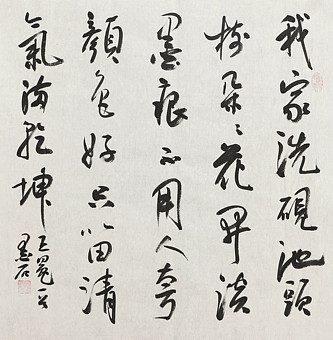 我家洗硯池頭
樹朵々花開淡
墨痕不用人夸
顏色好只留清
氣滿乾坤
王冕